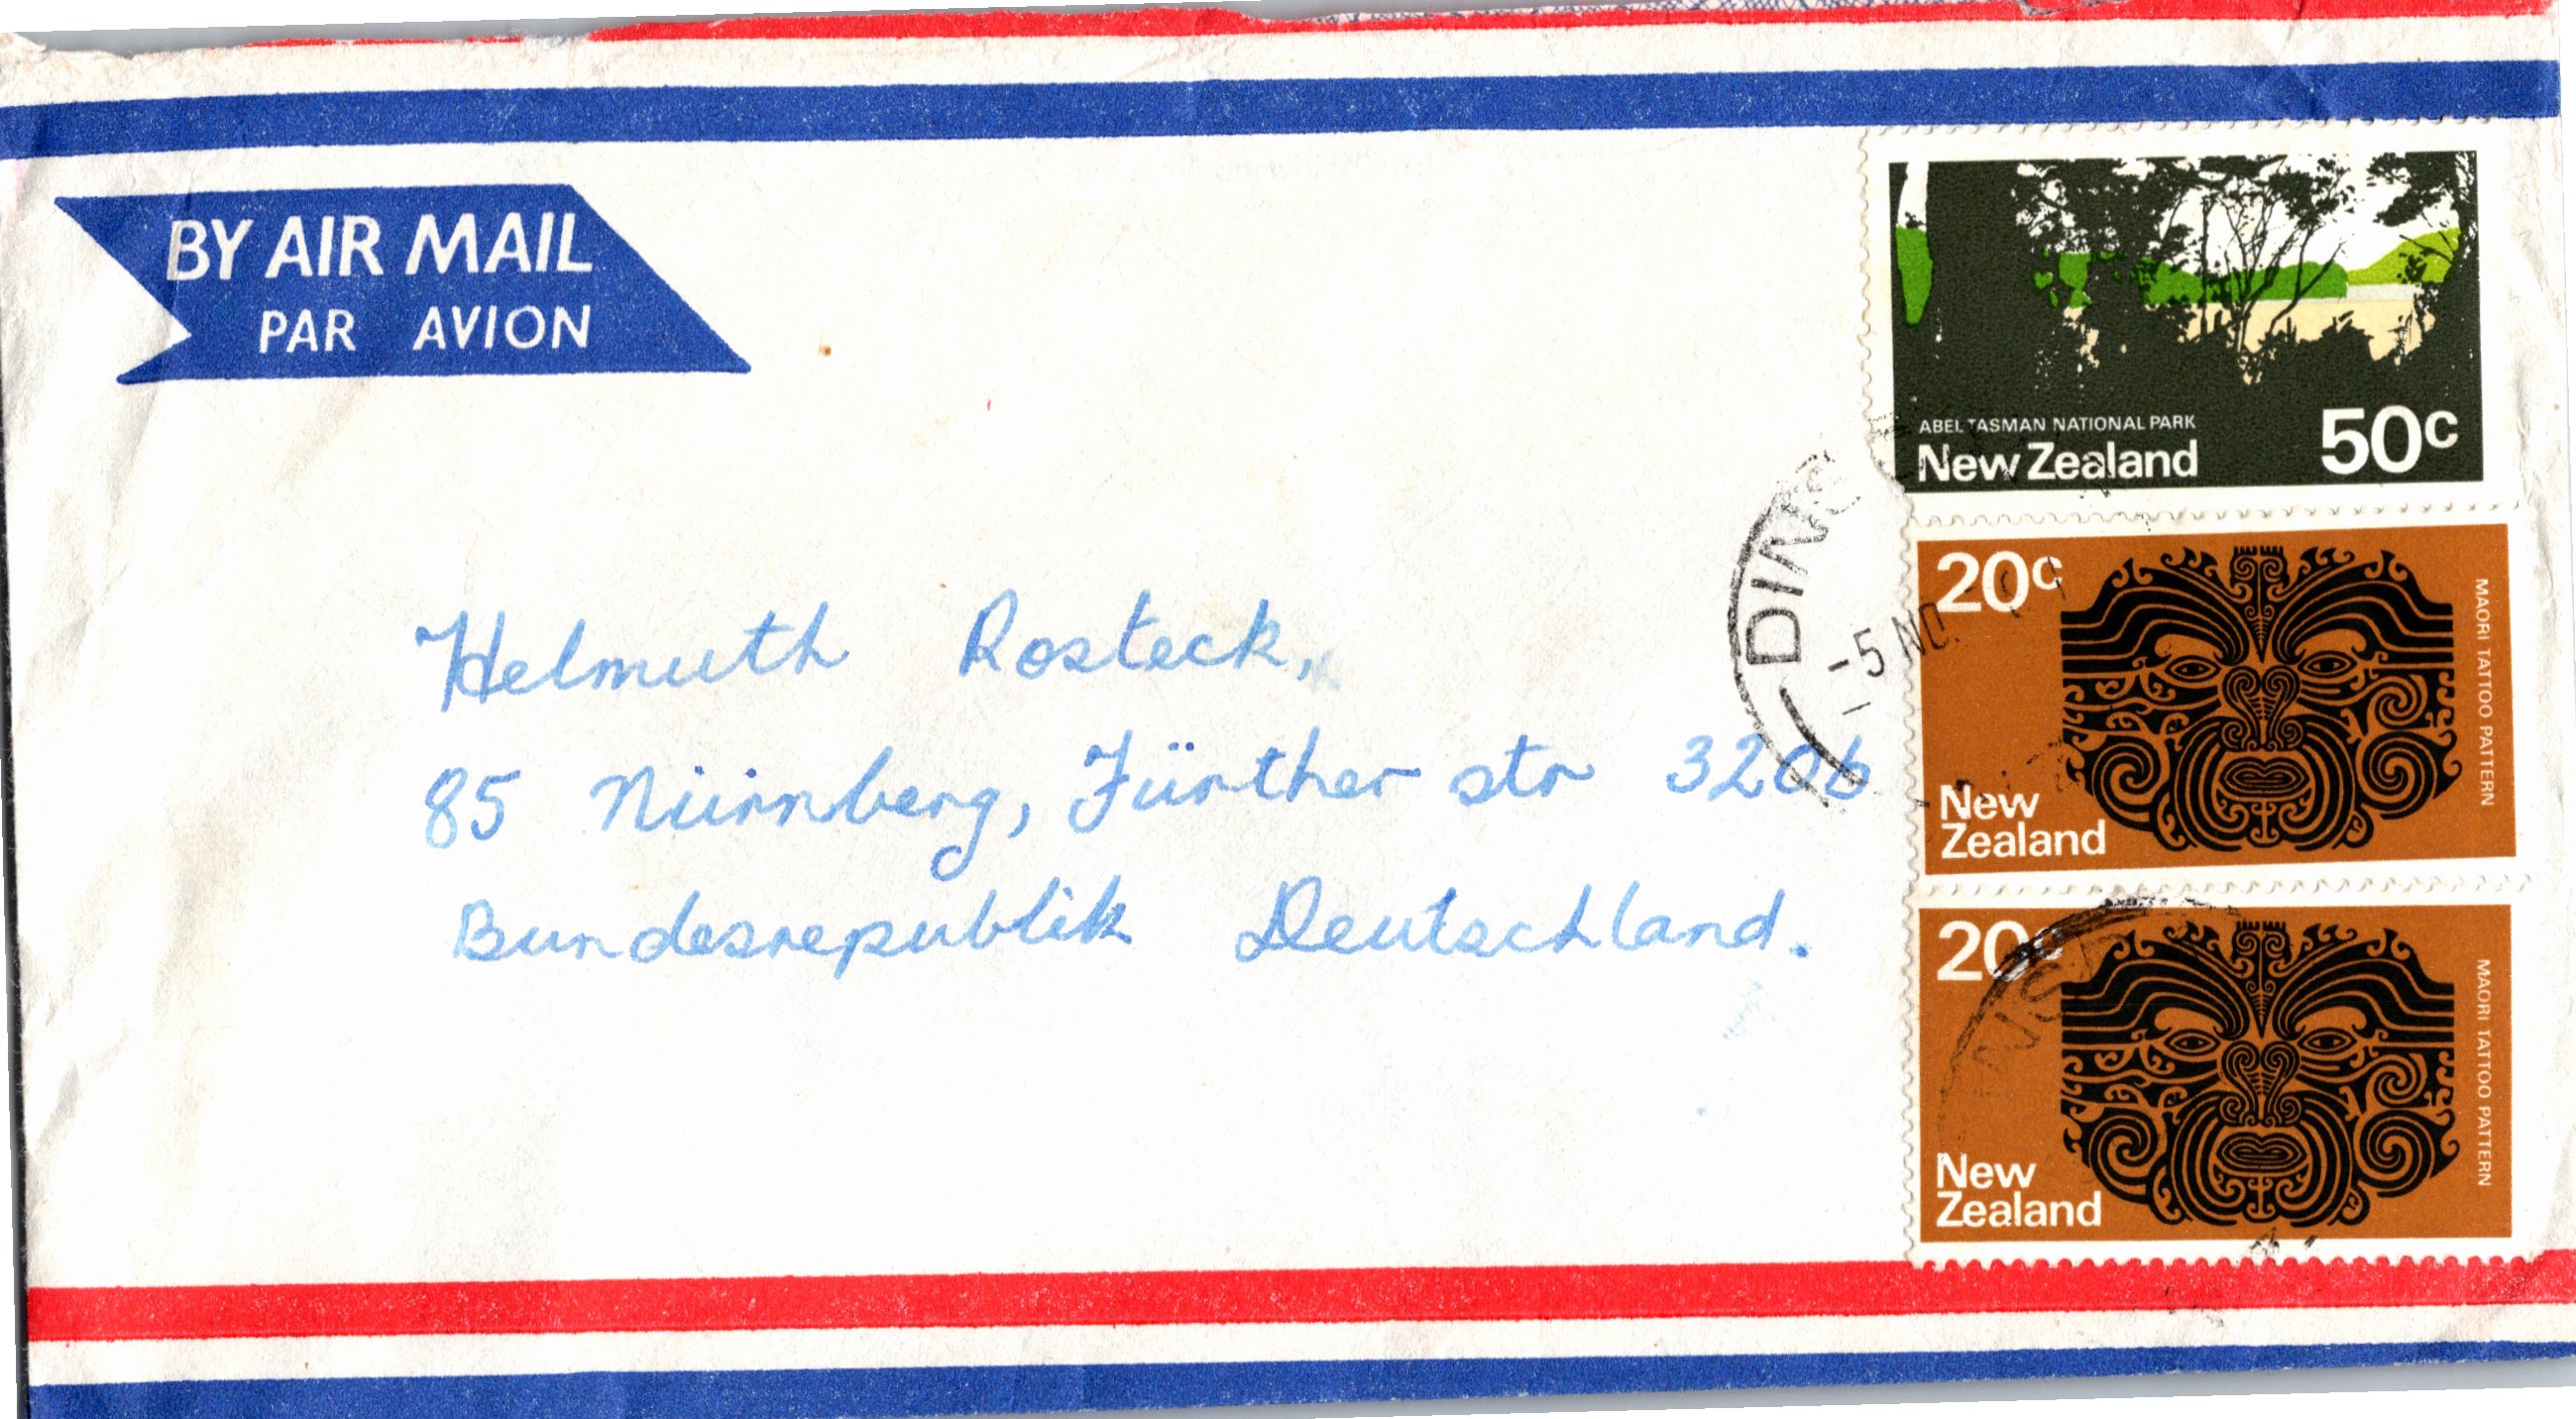 BY AIR MAIL
PAR AVION
ABEL TASMAN NATIONAL PARK
New Zealand 50c
20c
MAORI TATTOO PATTERN
New
Zealand
20c
MAORI TATTOO PATTERN
New
Zealand
-5 NO
Helmuth Rosteck,
85 Nürnberg, Fürther str 320b
Bundesrepublik Deutschland.